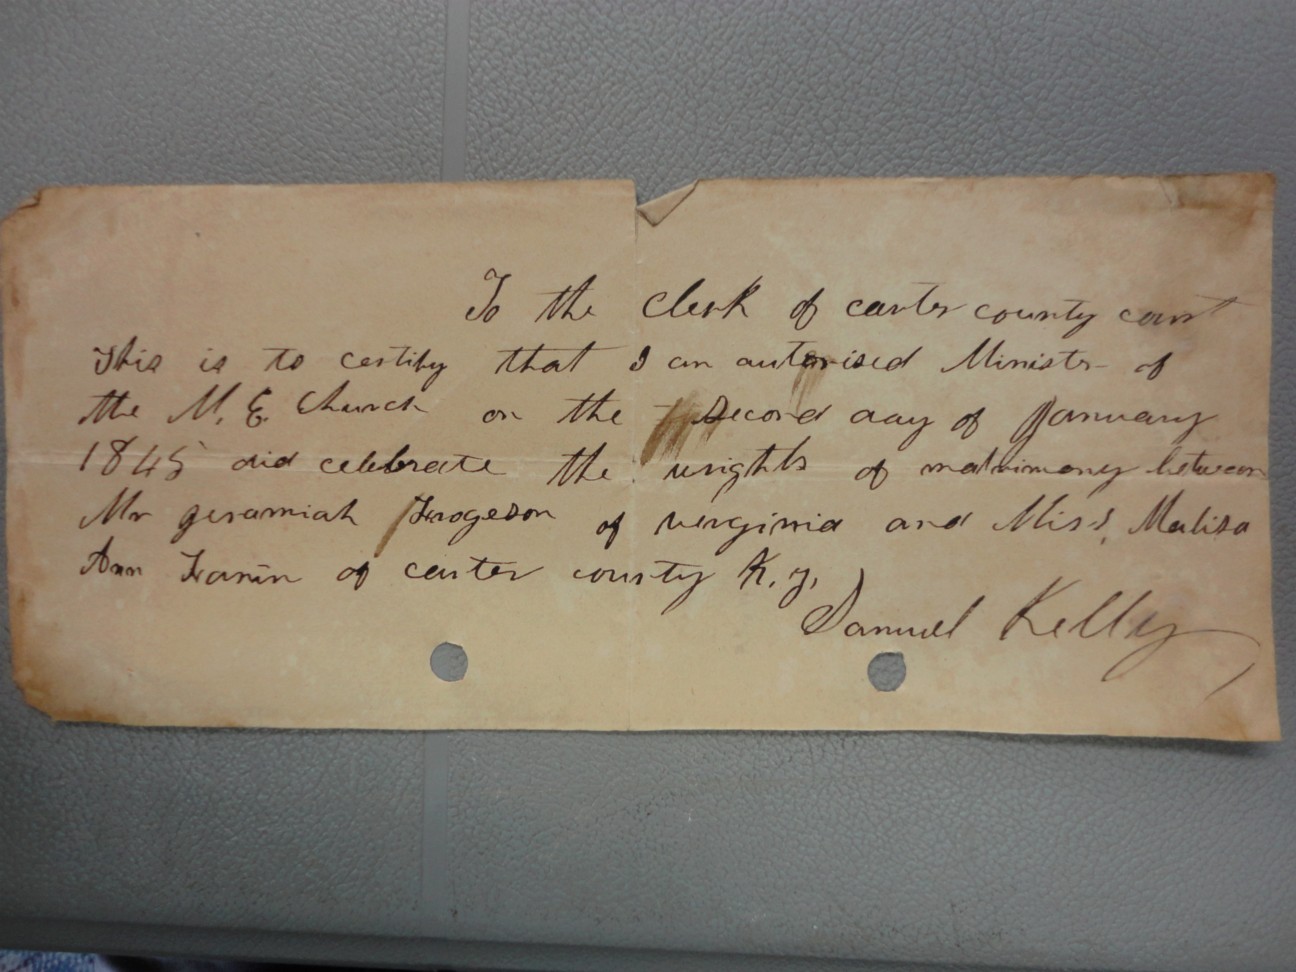 To the Clerk of carter county court
This is to certify that I an autorised Minister of
the M. E. Church on the Second day of January
1845 did celebrate the wrights of matrimony between
Mr geramiah Frogeson of verginia and Miss, Malisa
Ann Fanin of carter county K. y,
Samuel Kelly